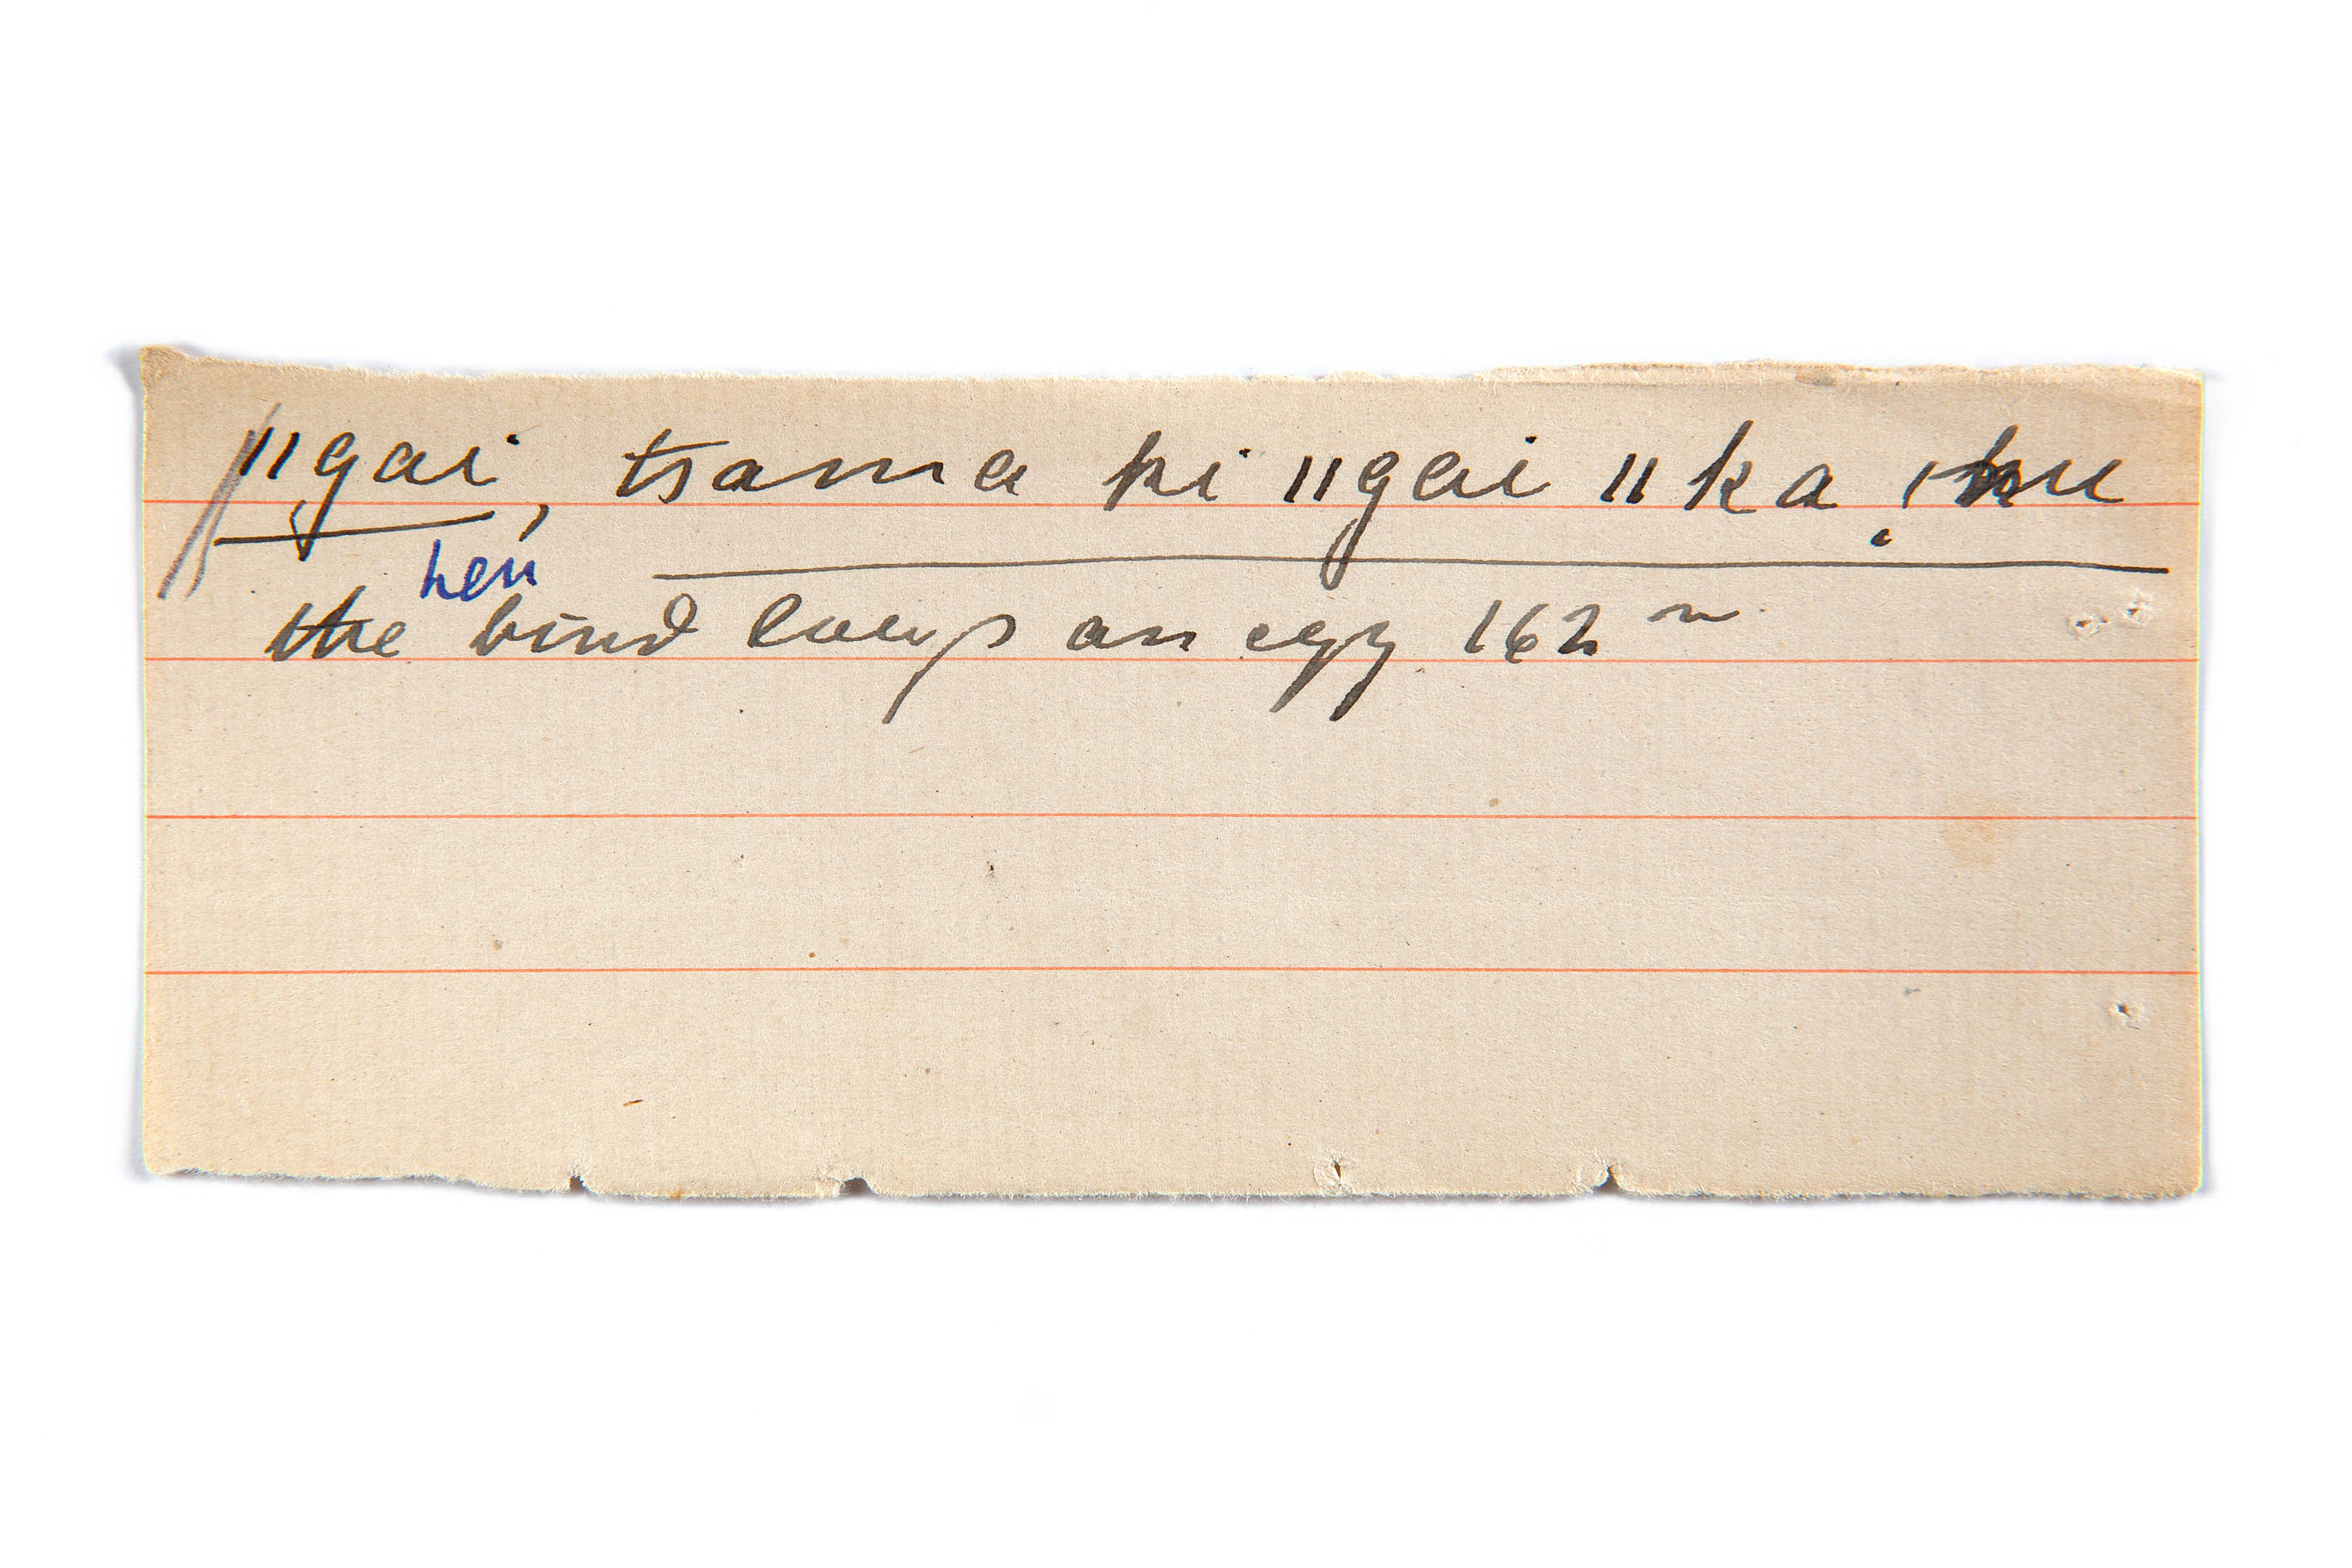 ǁgai, tsama ki ǁgai ǁka !ku
hen
the bird lays an egg 162